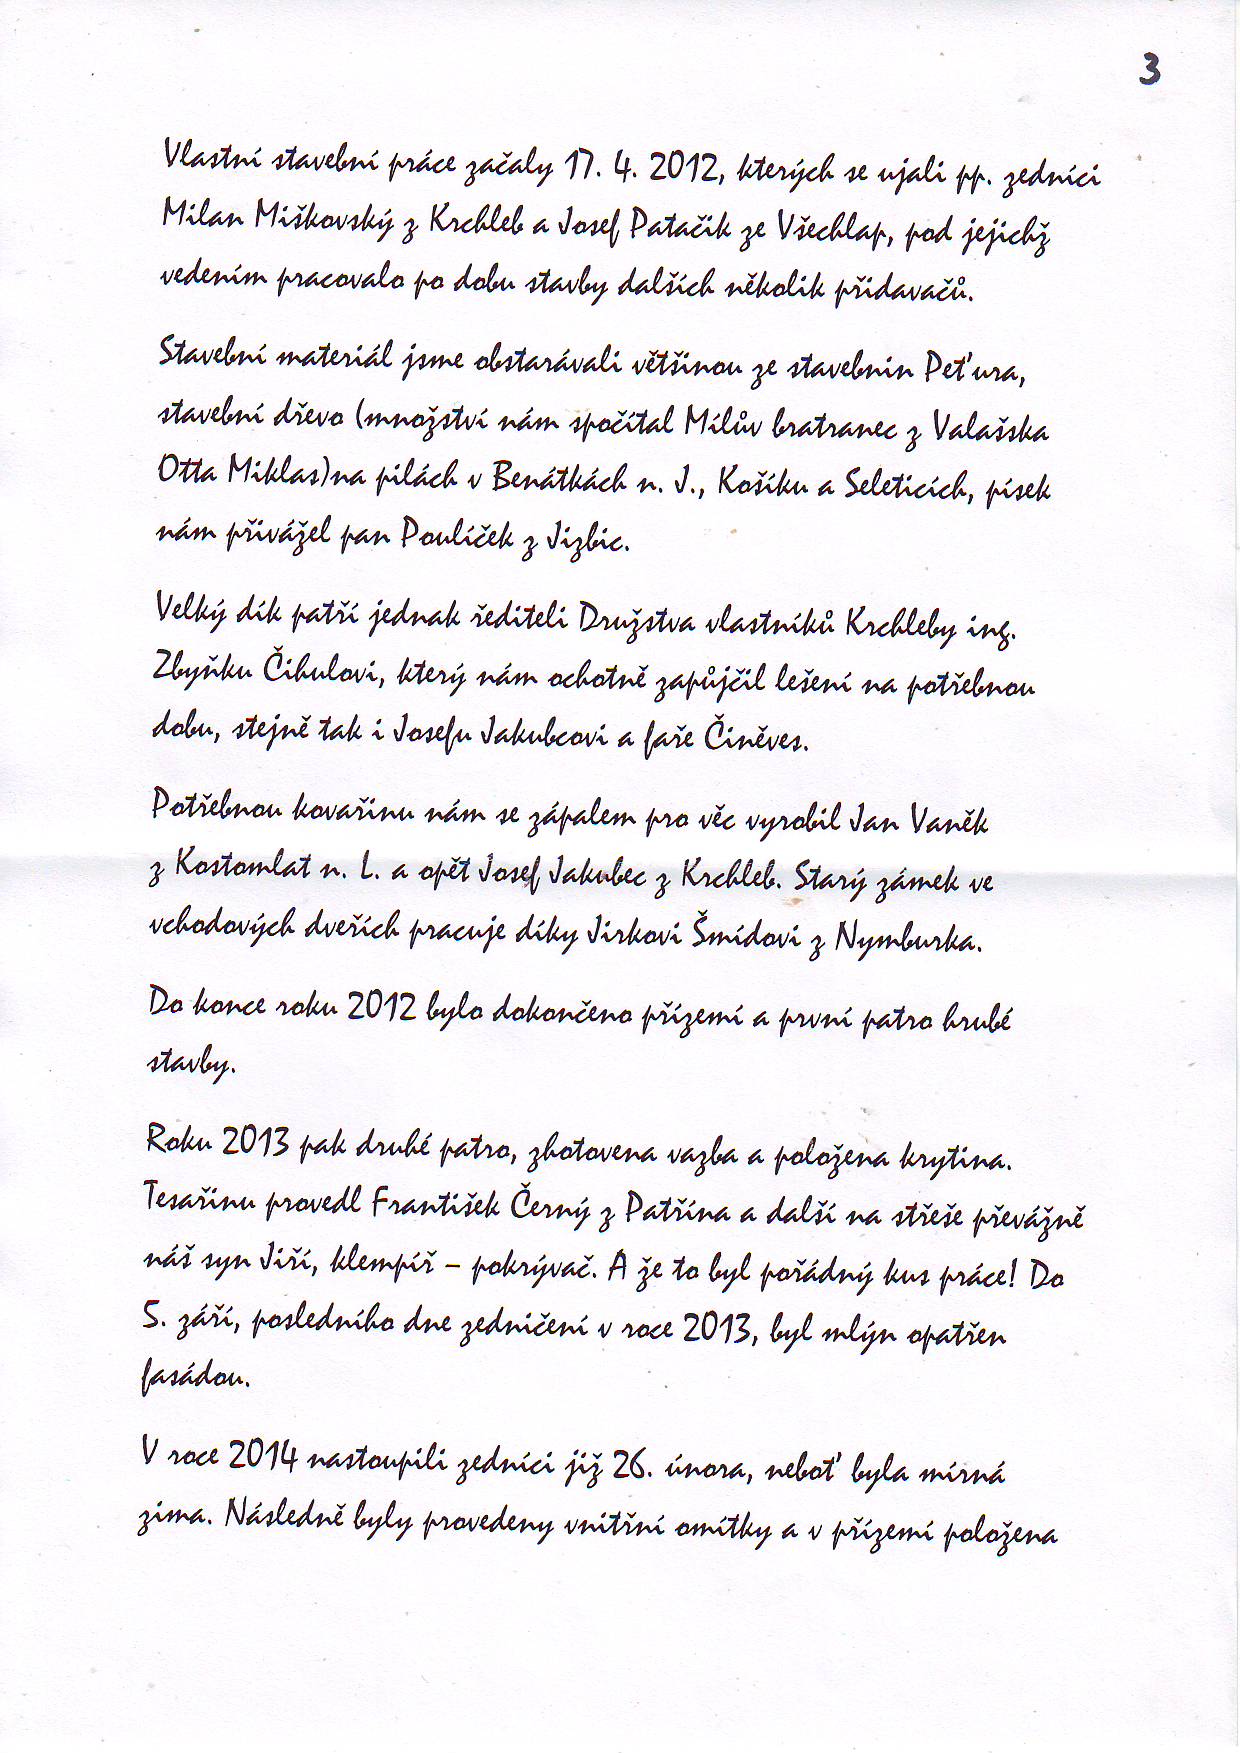 3
Vlastní stavební práce začaly 17. 4. 2012, kterých se ujali pp. zedníci
Milan Miškovský z Krchleb a Josef Patačik ze Všechlap, pod jejichž
vedením pracovalo po dobu stavby dalších několik přidavačů.
Stavební materiál jsme obstarávali většinou ze stavebnin Peťura,
stavební dřevo (množství nám spočítal Mílův bratranec z Valašska
Otta Miklas)na pilách v Benátkách n. J., Košíku a Seleticích, písek
nám přivážel pan Poulíček z Jizbic.
Velký dík patří jednak řediteli Družstva vlastníků Krchleby ing.
Zbyňku Čihulovi, který nám ochotně zapůjčil lešení na potřebnou
dobu, stejně tak i Josefu Jakubcovi a faře Činěves.
Potřebnou kovařinu nám se zápalem pro věc vyrobil Jan Vaněk
z Kostomlat n. L. a opět Josef Jakubec z Krchleb. Starý zámek ve
vchodových dveřích pracuje díky Jirkovi Šmídovi z Nymburka.
Do konce roku 2012 bylo dokončeno přízemí a první patro hrubé
stavby.
Roku 2013 pak druhé patro, zhotovena vazba a položena krytina.
Tesařinu provedl František Černý z Patřína a další na střeše převážně
náš syn Jiří, klempíř – pokrývač. A že to byl pořádný kus práce! Do
5. září, posledního dne zedničení v roce 2013, byl mlýn opatřen
fasádou.
V roce 2014 nastoupili zedníci již 26. února, neboť byla mírná
zima. Následně byly provedeny vnitřní omítky a v přízemí položena